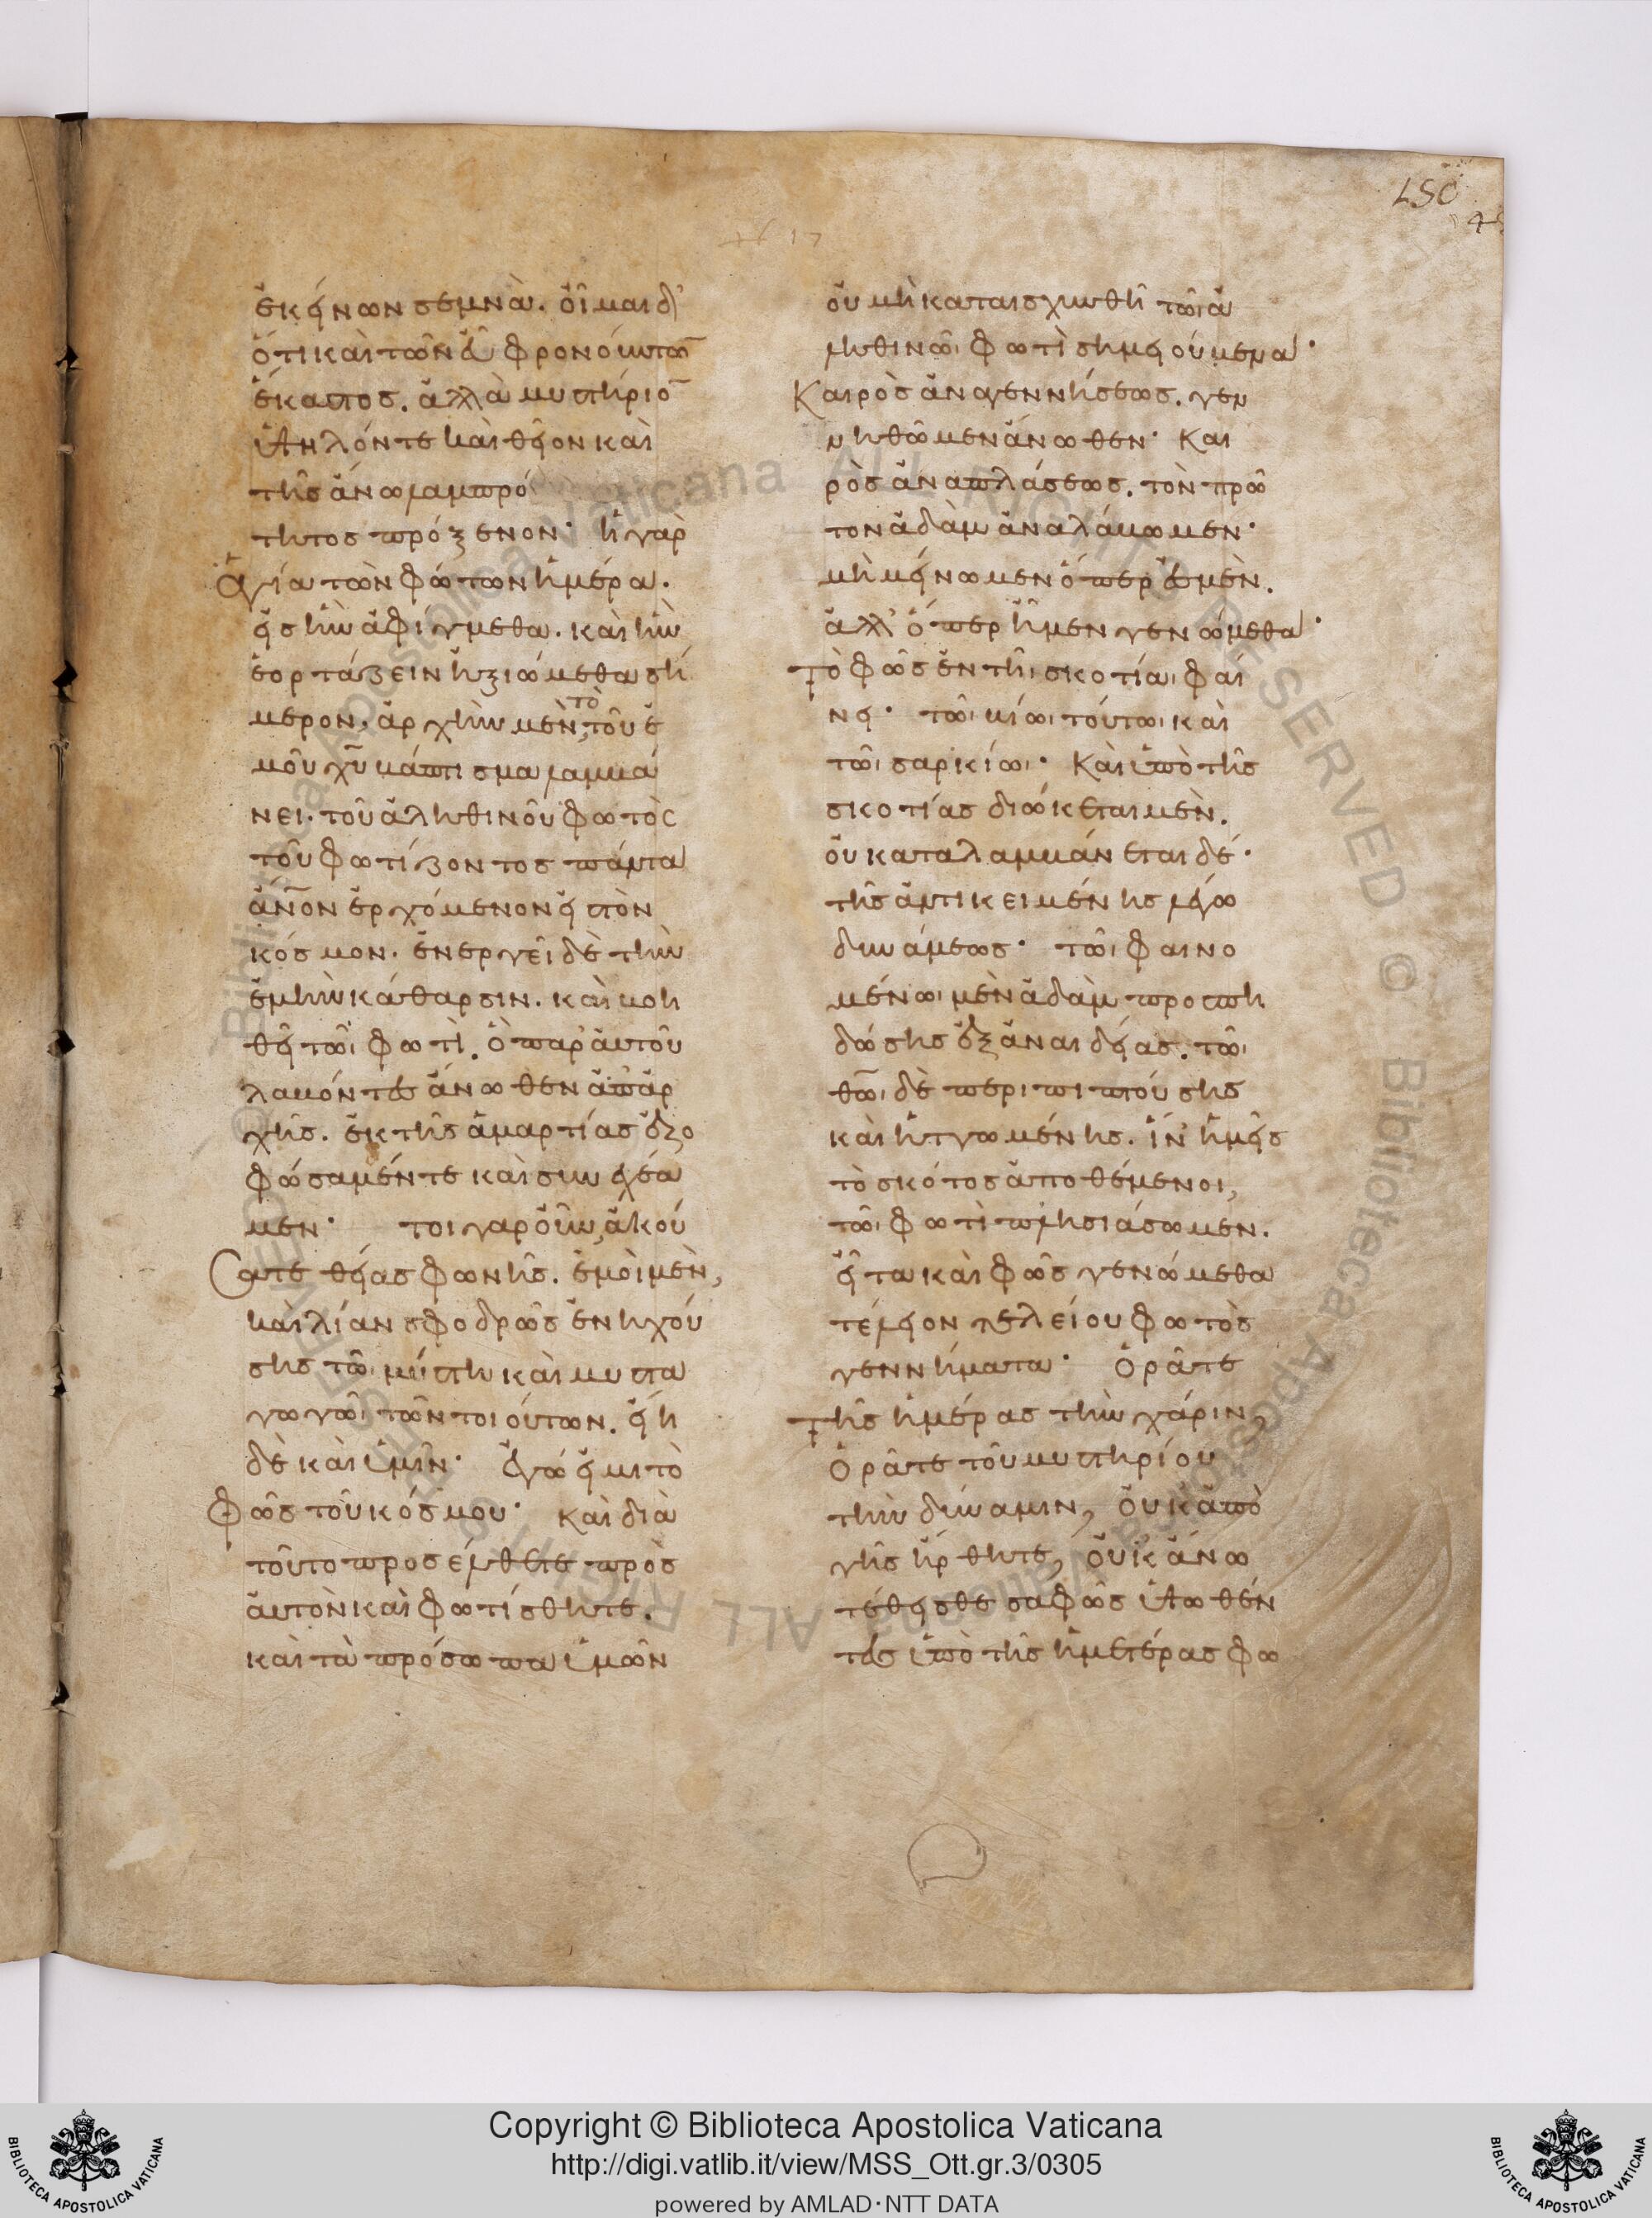 ἐκείνων σεμνὰ. οἶμαι δ'
ὅτι καὶ τῶν εὖ φρονούντω̅
ἕκαστος. ἀλλὰ μυστήριο̅
ὑψηλόν τε καὶ θεῖον καὶ
τῆς ἄνω λαμπρό
τητος πρόξενον· ἡ γὰρ
ἁγία τῶν φώτων ἡμέρα.
εἰς ἣν ἀφίγμεθα. καὶ ἣν
ἑορτάζειν ἠξιώμεθα σή
μερον, ἀρχὴν μὲν, τὸ τοῦ ἐ
μοῦ χ̅υ̅ βάπτισμα λαμβά
νει. τοῦ ἀληθινοῦ φωτὸς
τοῦ φωτίζοντος πάντα
ἄν̅ον ἐρχόμενον εἰς τὸν
κόσμον. ἐνεργεῖ δὲ τὴν
ἐμὴν κάθαρσιν. καὶ βοη
θεῖ τῶι φωτὶ. ὃ παρ' αὐτοῦ
λαβόντες ἄνωθεν ἀπ' ἀρ
χῆς. ἐκ τῆς ἁμαρτίας ἐζο
φώσαμέν τε καὶ συνεχέα
μεν· τοιγαροῦν, ἀκού
σατε θείας φωνῆς. ἐμοὶ μὲν,
καὶ λίαν σφοδρῶς ἐνηχού
σης τῶι μύστηι καὶ μυστα
γωγῶι τῶν τοιούτων. εἴη
δὲ καὶ ὑμῖν· ἐγώ εἰμι τὸ
φῶς τοῦ κόσμου· καὶ διὰ
τοῦτο προσέλθετε πρὸς
αὐτὸν καὶ φωτίσθητε.
καὶ τὰ πρόσωπα ὑμῶν
οὐ μὴ καταισχυνθῆι τῶι ἀ
ληθινῶι φωτὶ σημειούμενα·
Καιρὸς ἀναγεννήσεως. γεν
νηθῶμεν ἄνωθεν· Και
ρὸς ἀναπλάσεως. τὸν πρῶ
τον ἀδὰμ ἀναλάβωμεν·
μὴ μείνωμεν ὅπερ ἐσμὲν.
ἀλλ' ὅπερ ἦμεν γενώμεθα·
Τὸ φῶς ἐν τῆι σκοτίαι φαί
νει· τῶι βίωι τούτωι καὶ
τῶι σαρκίωι· Καὶ ὑπὸ τῆς
σκοτίας διώκεται μὲν.
οὐ καταλαμβάνεται δέ·
τῆς ἀντικειμένης λέγω
δυνάμεως· τῶι φαινο
μένωι μὲν ἀδὰμ προσπη
δώσης ἐξ ἀναιδείας. τῶι
θ̅ω̅ι δὲ περιπιπτούσης
καὶ ἡττωμένης. ἵν' ἡμεῖς
τὸ σκότος ἀποθέμενοι,
τῶι φωτὶ πλησιάσωμέν.
εἶτα καὶ φῶς γενώμεθα
τέλειον τελείου φωτὸς
γεννήματα· Ὁρᾶτε
τῆς ἡμέρας τὴν χάριν,
Ὁρᾶτε τοῦ μυστηρίου
τὴν δύναμιν, Οὐκ ἀπὸ
γῆς ἤρθητε, οὐκ ἄνω
τέθεισθε σαφῶς ὑψωθέν
τες ὑπὸ τῆς ἡμετέρας φω
Copyright © Biblioteca Apostolica Vaticana
http://digi.vatlib.it/view/MSS_Ott.gr.3/0305
powered by AMLAD·NTT DATA